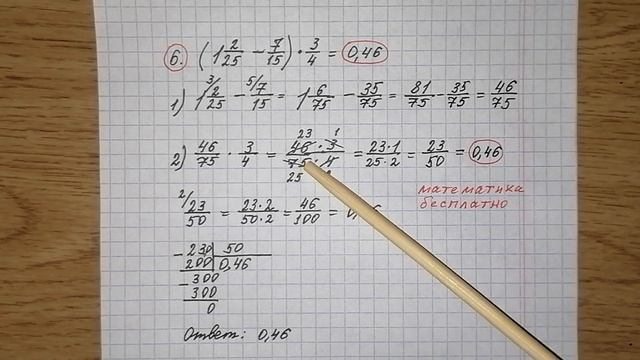 6. (1 2/25 − 7/15) · 3/4 = 0,46
1) 1 2/25 ³ − 7/15 ⁵ = 1 6/75 − 35/75 = 81/75 − 35/75 = 46/75
2) 46/75 · 3/4 = 46 · 3 / 75 · 4 = 23·1 / 25·2 = 23/50 = 0,46
23 1
25
математика
бесплатно
2/ 23/50 = 23·2 / 50·2 = 46/100 =
− 230 | 50
200 | 0,46
− 300
300
0
Ответ: 0,46